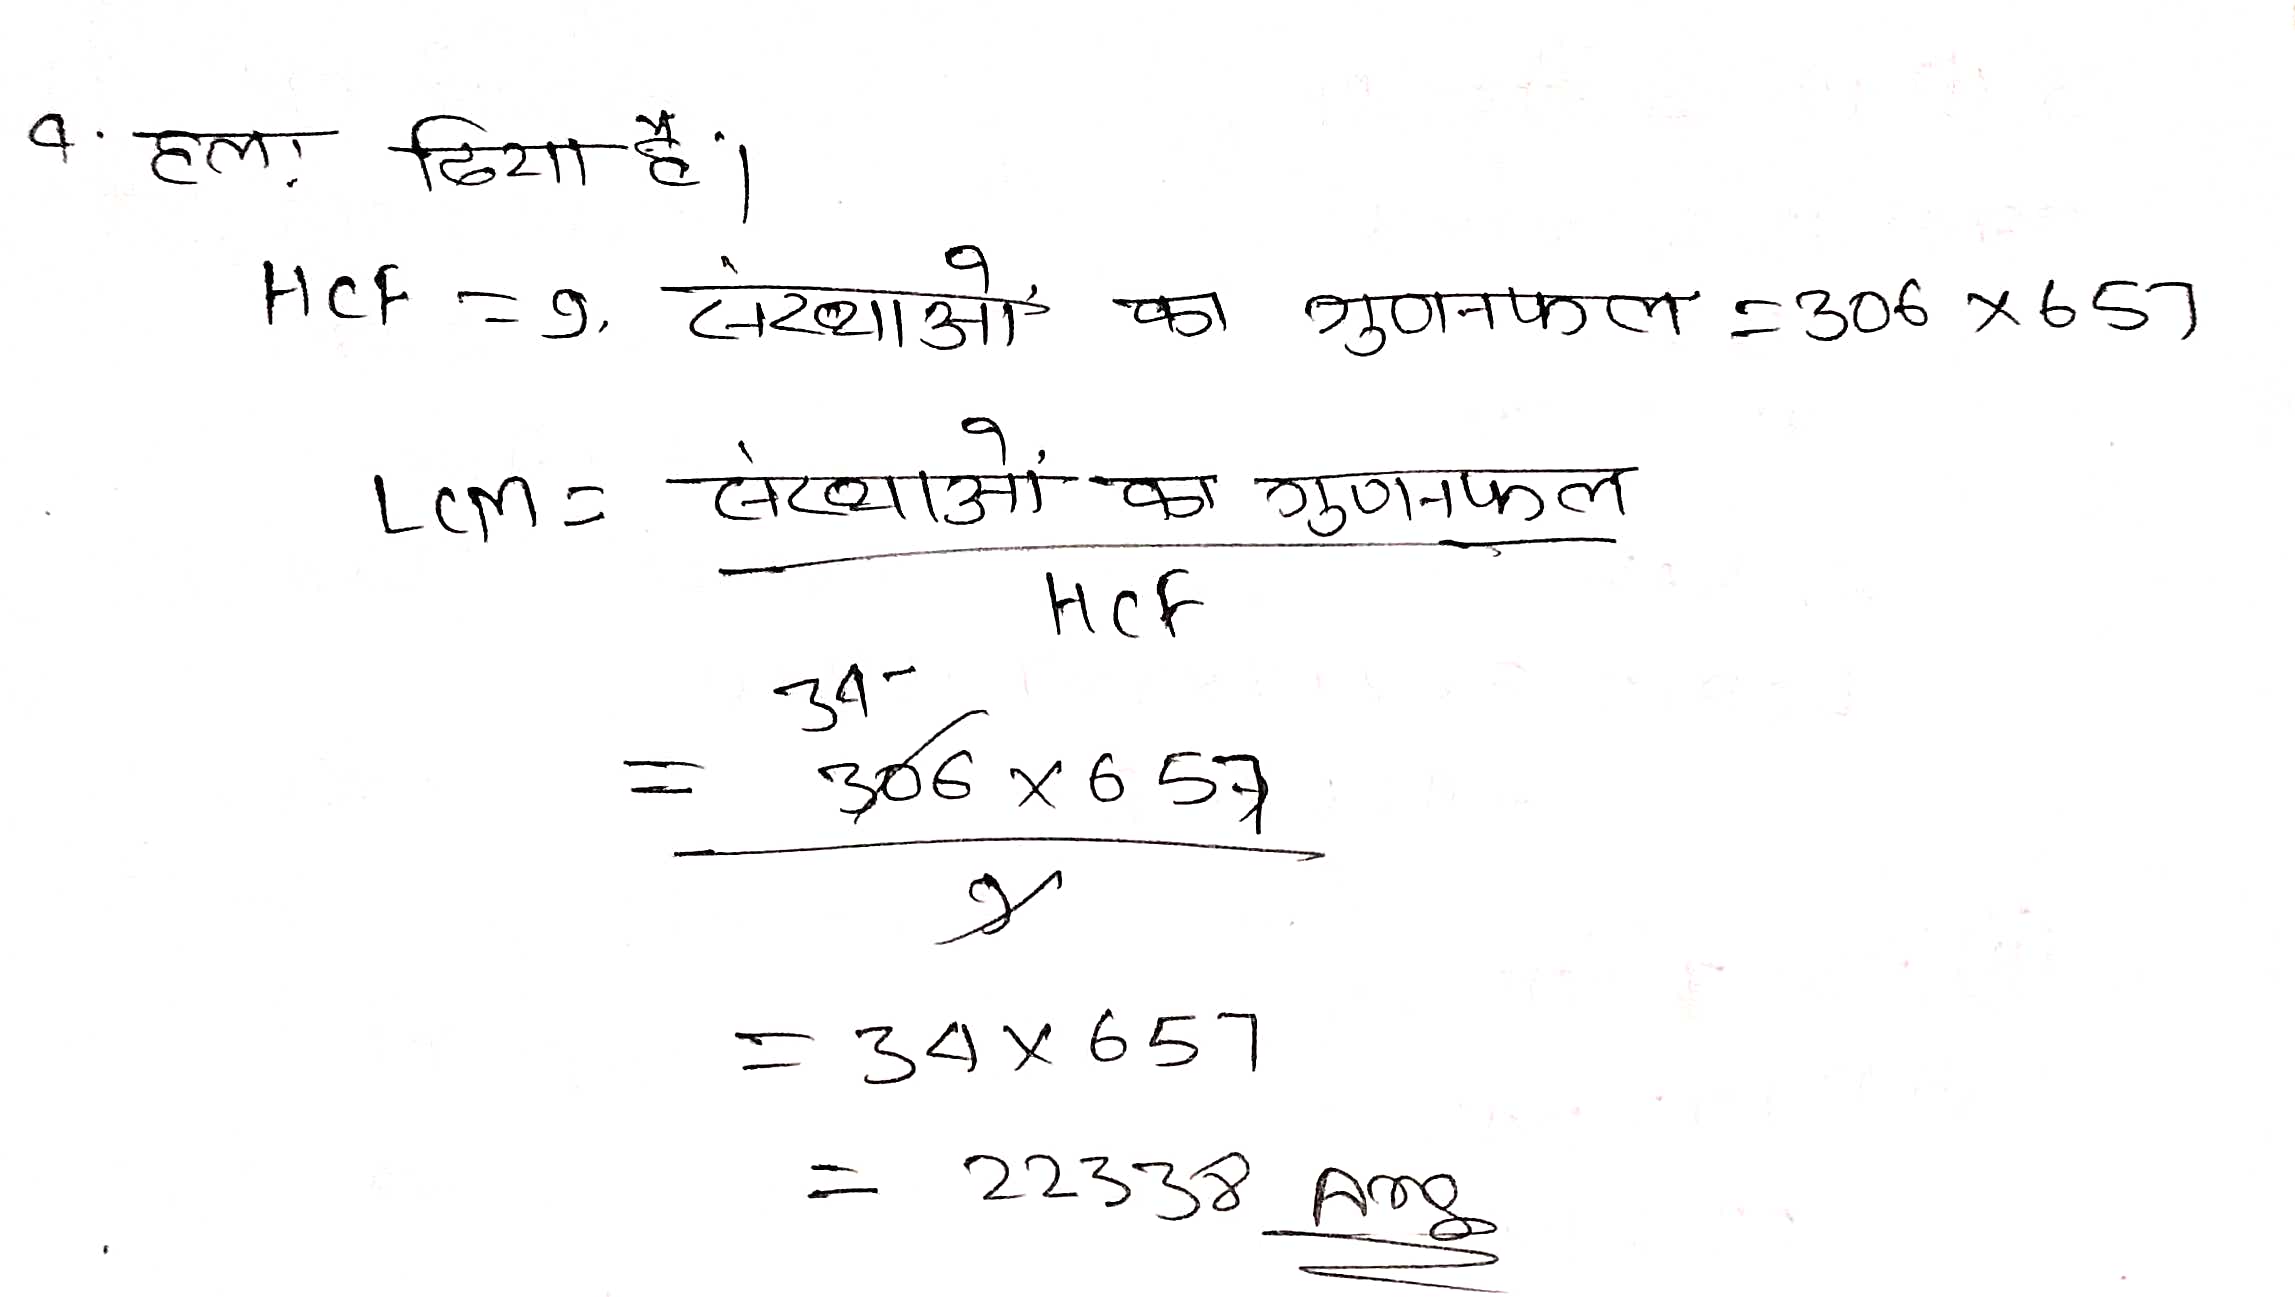 4. हल: दिया है।
HCF = 9, संख्याओं का गुणनफल = 306 × 657
LCM = संख्याओं का गुणनफल
HCF
34
= 306 × 657
9
= 34 × 657
= 22338 Ans